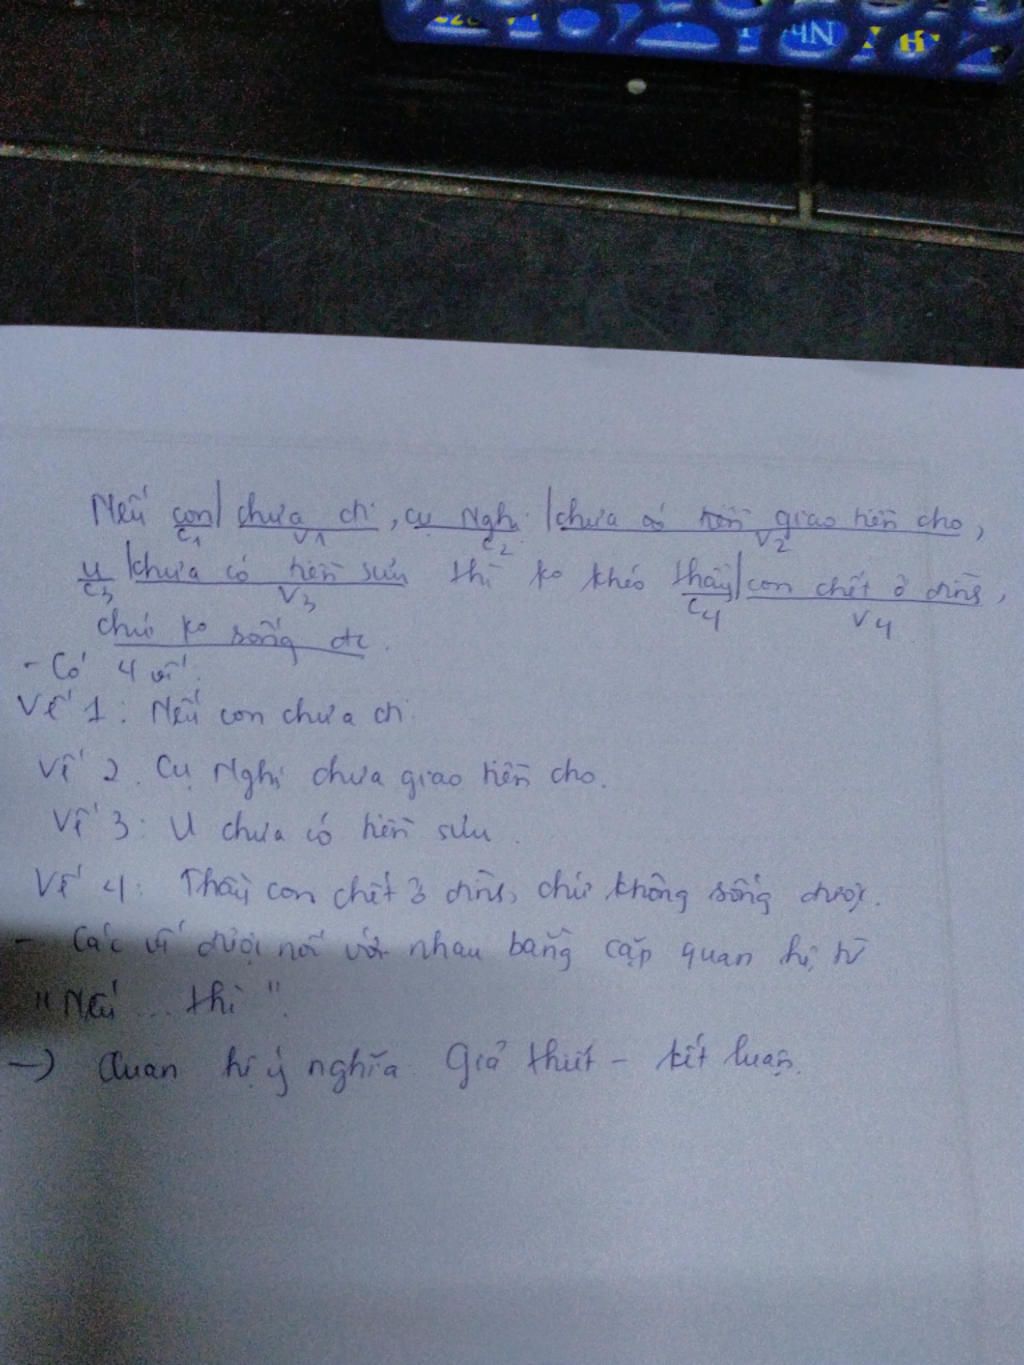 Nếu con | chưa đi, cụ Nghị | chưa có tiền giao tiền cho,
C1 V1 C2 V2
u | chưa có tiền sưu thì ko khéo thầy | con chết ở đình,
C3 V3 C4 V4
chứ ko sống đc.
- Có 4 vế.
Vế 1: Nếu con chưa đi
Vế 2. Cụ Nghị chưa giao tiền cho.
Vế 3: U chưa có tiền sưu.
Vế 4: Thầy con chết ở đình, chứ không sống được.
- Các vế được nối với nhau bằng cặp quan hệ từ
"Nếu... thì".
→ Quan hệ ý nghĩa Giả thiết - kết luận.